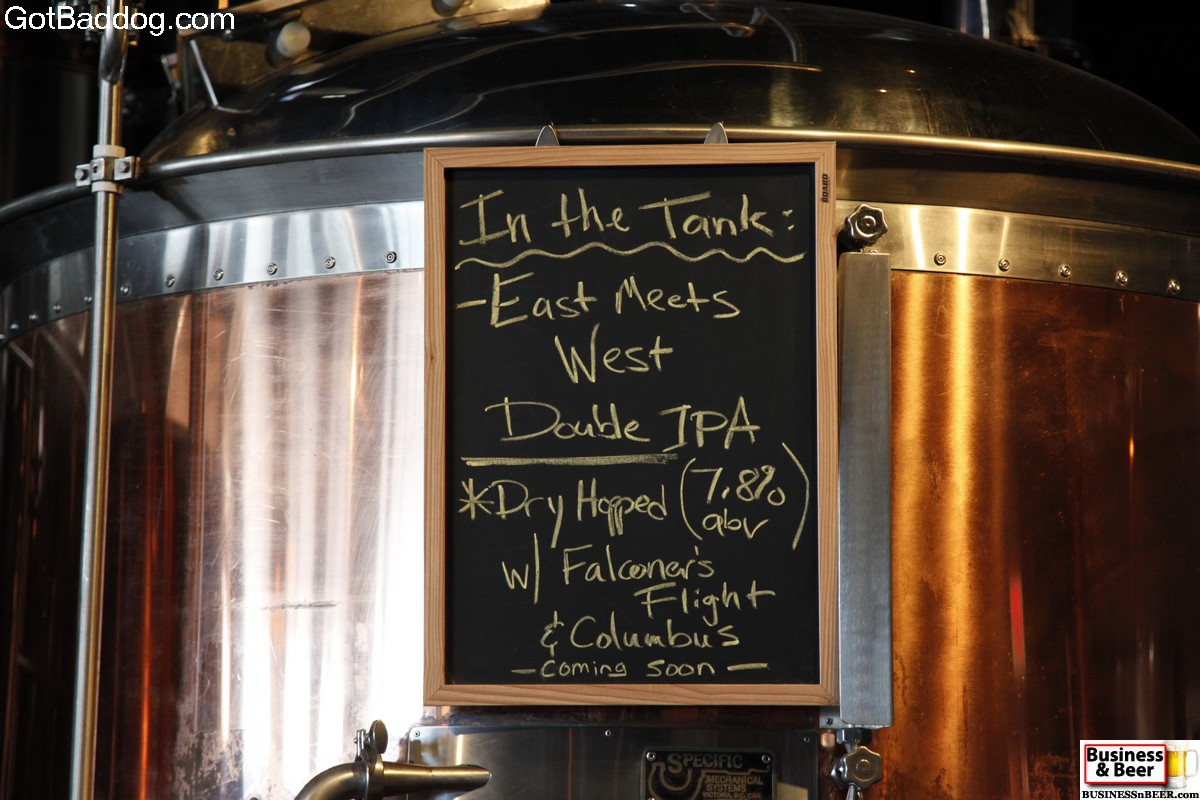 GotBaddog.com
BOARD
In the Tank:
-East Meets
West
Double IPA
*Dry Hopped (7.8%
abv)
w/ Falconer's
Flight
& Columbus
- Coming Soon -
SPECIFIC
MECHANICAL
SYSTEMS
VICTORIA, B.C. CAN.
Business
& Beer
BUSINESSnBEER.com